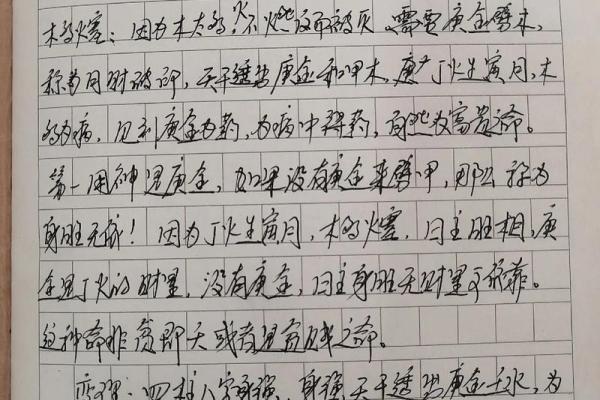 木多火塞：因为木太多，火不燃反而被灭，需要庚金劈木，
称为用财破印，天干透出庚金和甲木，庚，丁火生寅月，木
多为病，见到庚金为药，为病中得药，自然为富贵之命。
第一用神是庚金，如果没有庚金来劈甲，那么称为
身旺无依！因为丁火生寅月，木多火塞，日主旺相，庚
金是丁火的财星，没有庚金，日主身旺无财星可依靠。
这种命非贫即夭或者是贫贱之命。
变理：四柱八字身强，身强天干透出庚金壬水，为